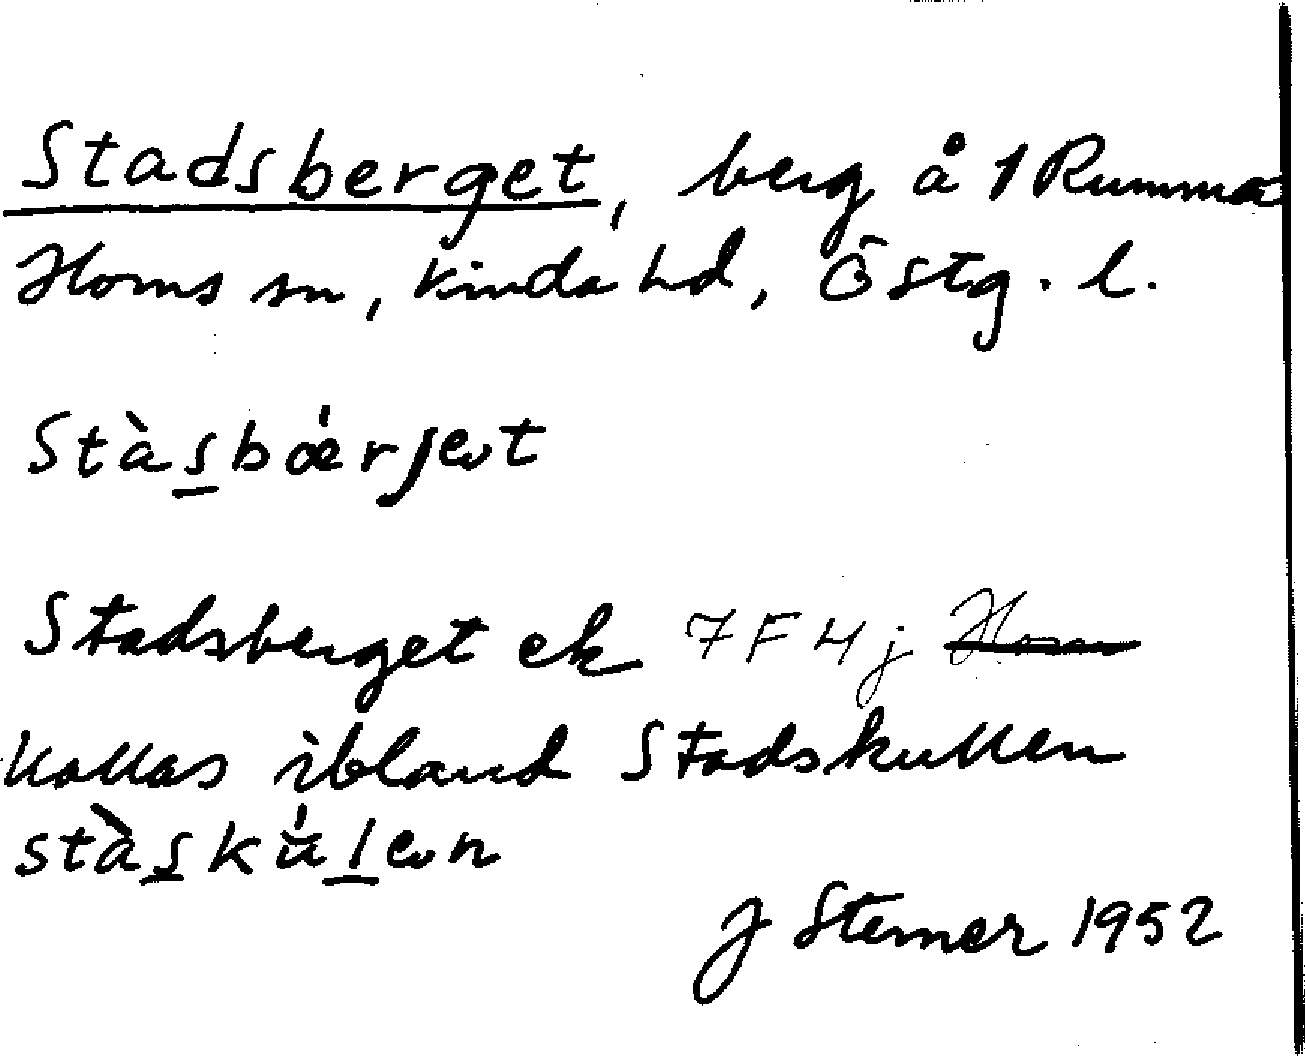 Stadsberget, berg å 1 Rumma
Horns sn, Kinda hd, Östg. l.
Stàsbǽrjet
Stadsberget ek 7F4j Horn
kallas ibland Stadskullen
stàskúlen
J Sterner 1952